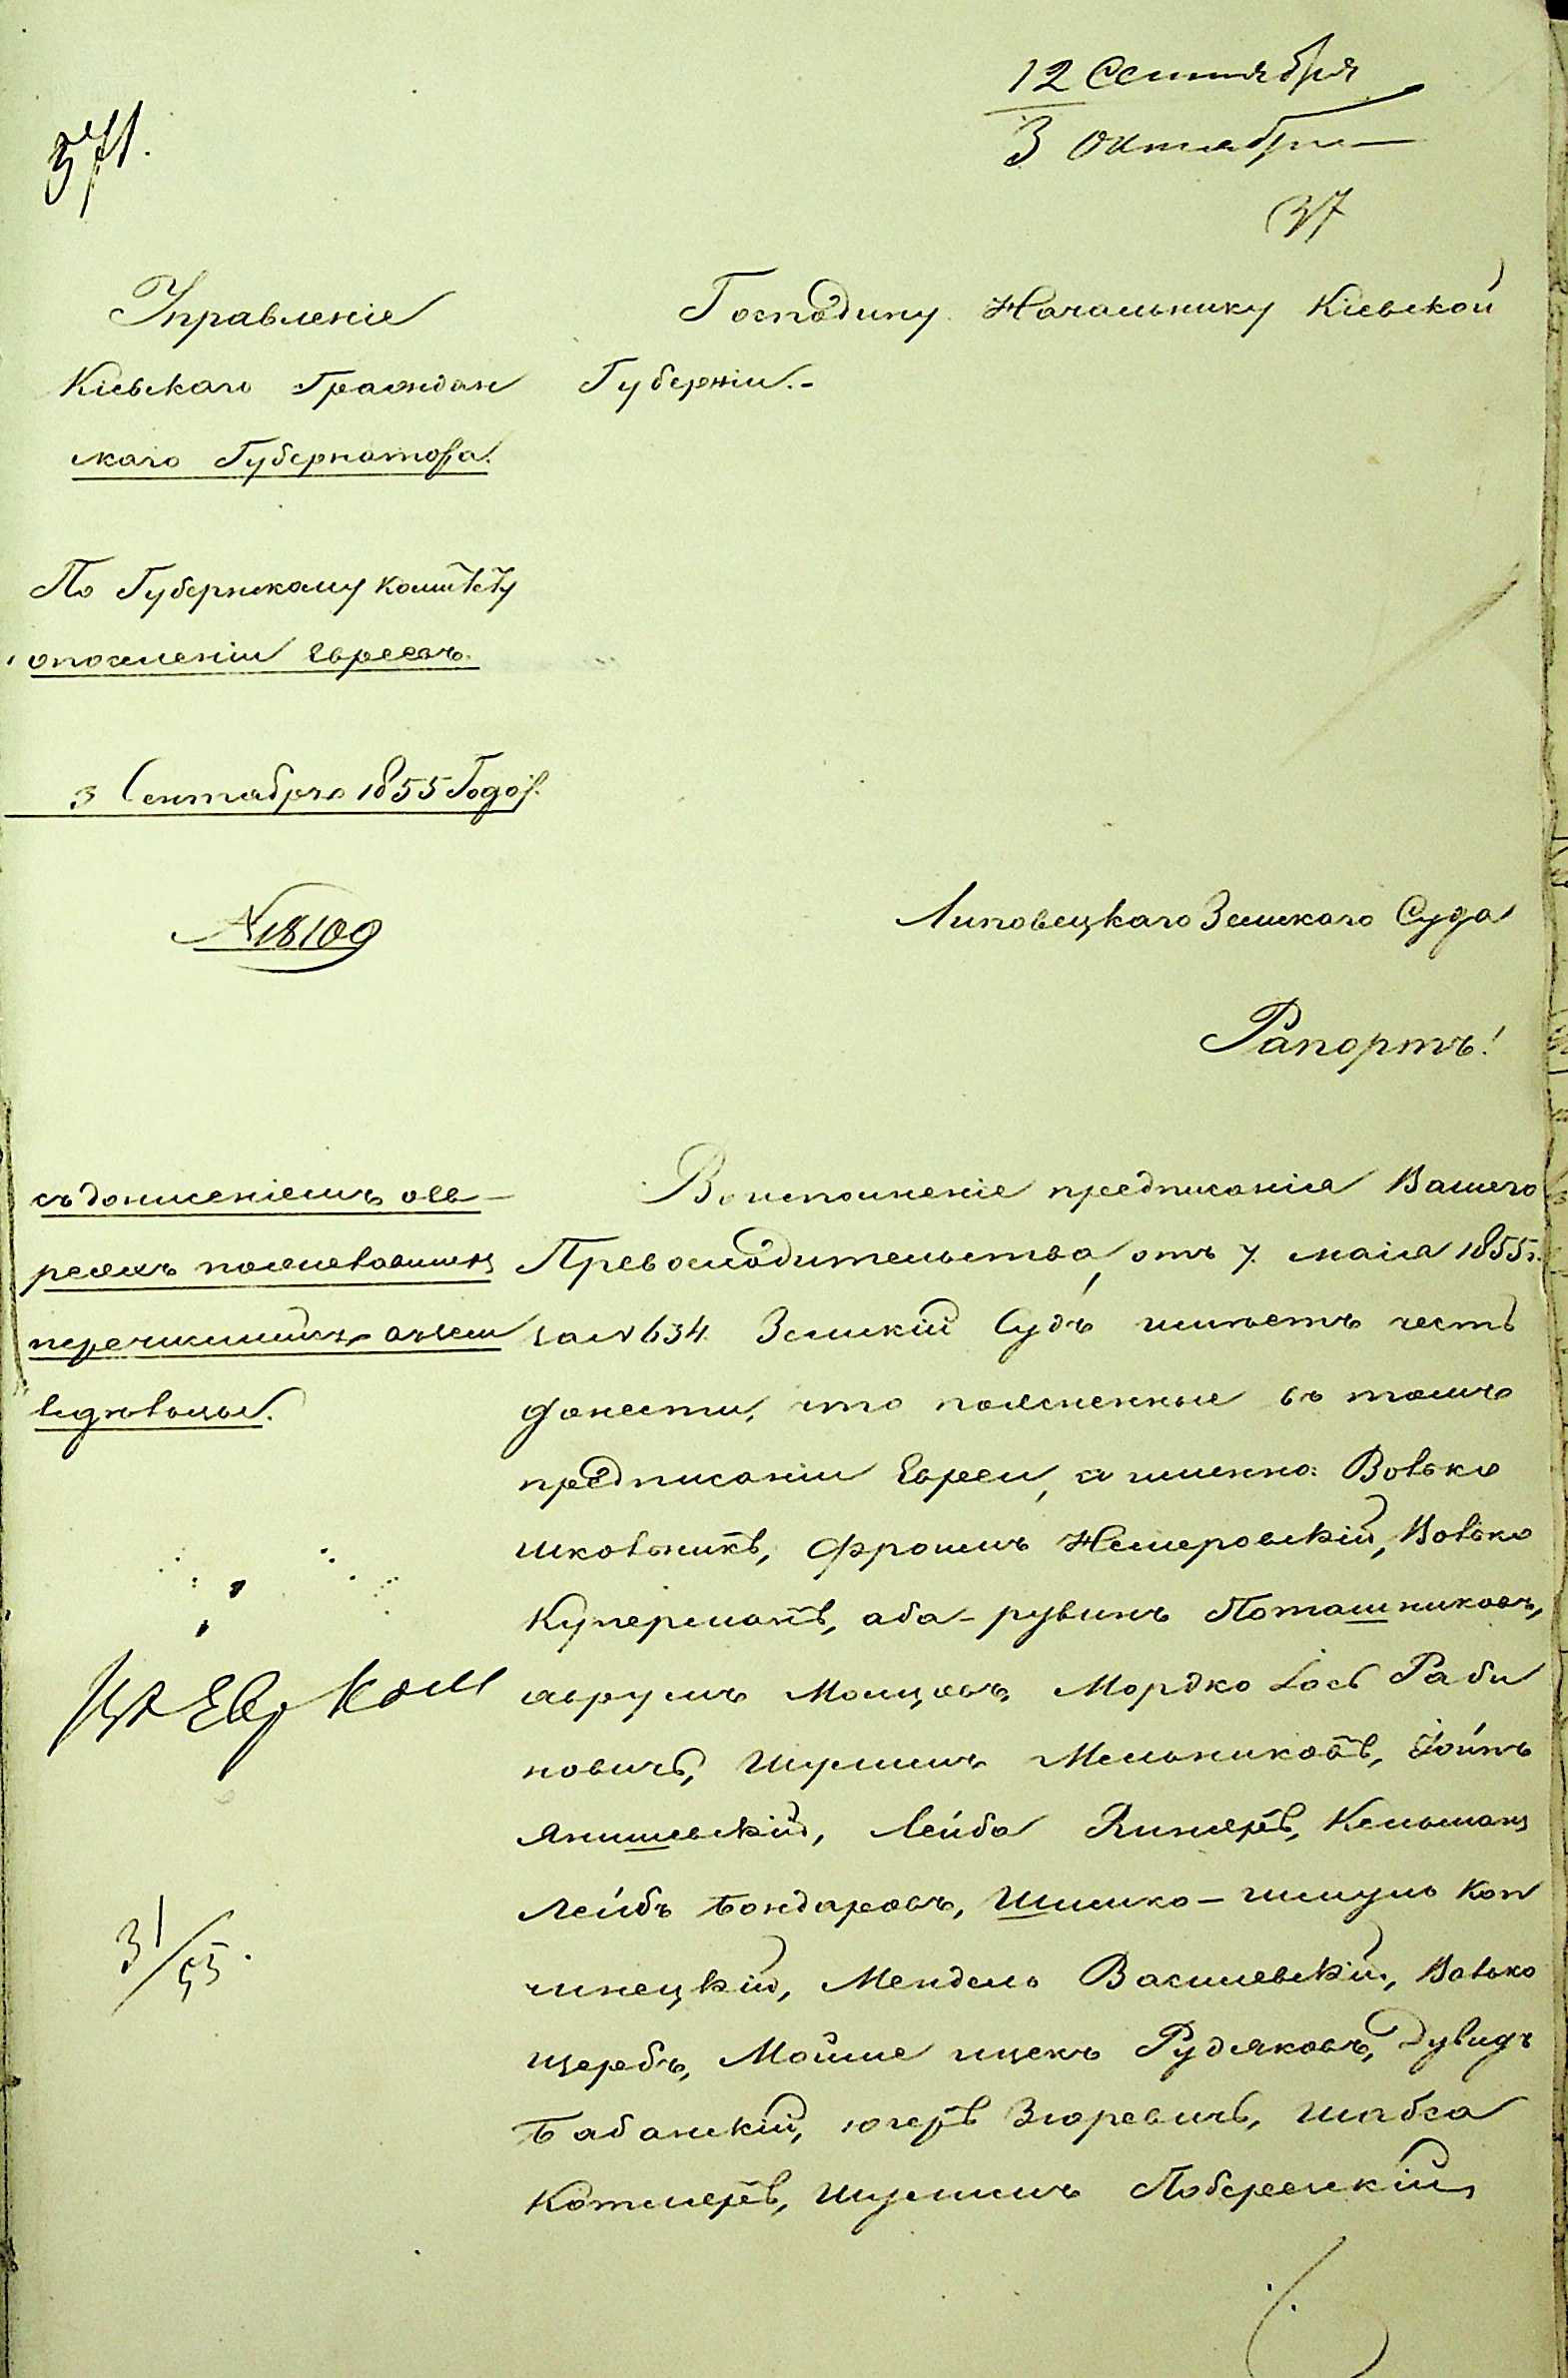 12 Сентября
3 Октября
371.
37
Управленіе
Кіевскаго Граждан
скаго Губернатора.
По Губернскому комитету
о поселеніи Евреевъ.
3 Сентября 1855 Года.
№ 18109
Господину Начальнику Кіевской
Губерніи.-
Липовецкаго Земскаго Суда
Рапортъ!
съ донисеніемъ о Ев-
реяхъ
перечислится въ земледѣльцы.
Во исполненіе предписанія Вашего
Превосходительства, отъ 7. маія 1855 г.
за № 634. Земскій Судъ имѣетъ честь
донести, что поясненные въ томъ
предписаніи Евреи, а именно: Волько
Школьникъ, Фроимъ Немеровскій, Волько
Куперманъ, Аба-рувинъ Поташниковъ,
аврумъ Мордко Іось Раби
новичъ, Шулимъ Мельниковъ,
Янишевскій, Лейба Кельманъ
Лейбъ Бондаревъ, Шимко-шмуль Коп
чинецкій, Мендель Василевскій, Волько
щербъ, Мойше ицекъ Рудяковъ, Дувидъ
Бабанскій, Зюревичъ, Шабса
Котляръ, Шулимъ Побережскій